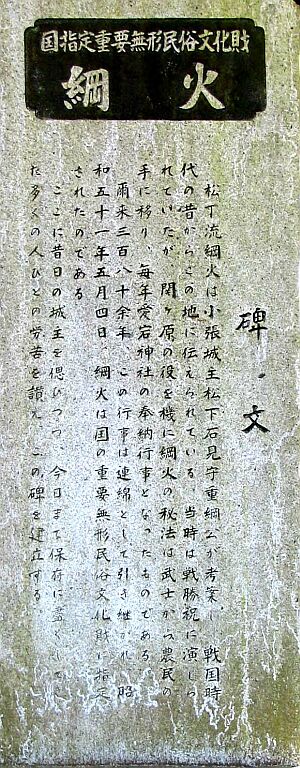 国指定重要無形民俗文化財
綱火
碑文
松下流綱火は小張城主松下石見守重綱公が考案し戦国時
代の昔からこの地に伝えられている、当時は戦勝祝に演じら
れていたが、関ヶ原の役を機に綱火の秘法は武士から農民の
手に移り、毎年愛宕神社の奉納行事となったものである
爾来三百八十余年、この行事は連綿として引き継がれ、昭
和五十一年五月四日、綱火は国の重要無形民俗文化財に指定
されたのである
ここに昔日の城主を偲びつつ、今日まで保存に盡くして
た多くの人びとの労苦を讃え、この碑を建立する